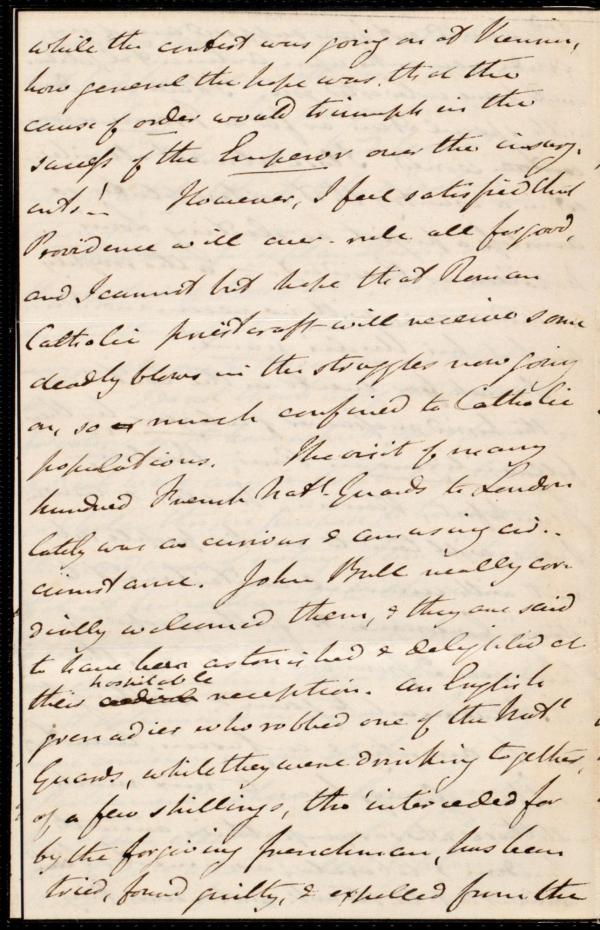 while the contest was going on at Vienna,
how general the hope was that the
cause of order would triumph in the
success of the Emperor over the insurg-
ents! However, I feel satisfied that
Providence will over-rule all for good,
and I cannot but hope that Roman
Catholic priestcraft will receive some
deadly blows in the struggles now going
on, so much confined to Catholic
populations. The visit of many
hundred French Natl. Guards to London
lately was a curious & amusing cir-
cumstance. John Bull really cor-
dially welcomed them, & they are said
to have been astonished & delighted at
their hospitable reception. An English
grenadier who robbed one of the Natl
Guards, while they were drinking together,
of a few shillings, tho' interceded for
by the forgiving frenchman, has been
tried, found guilty, & expelled from the